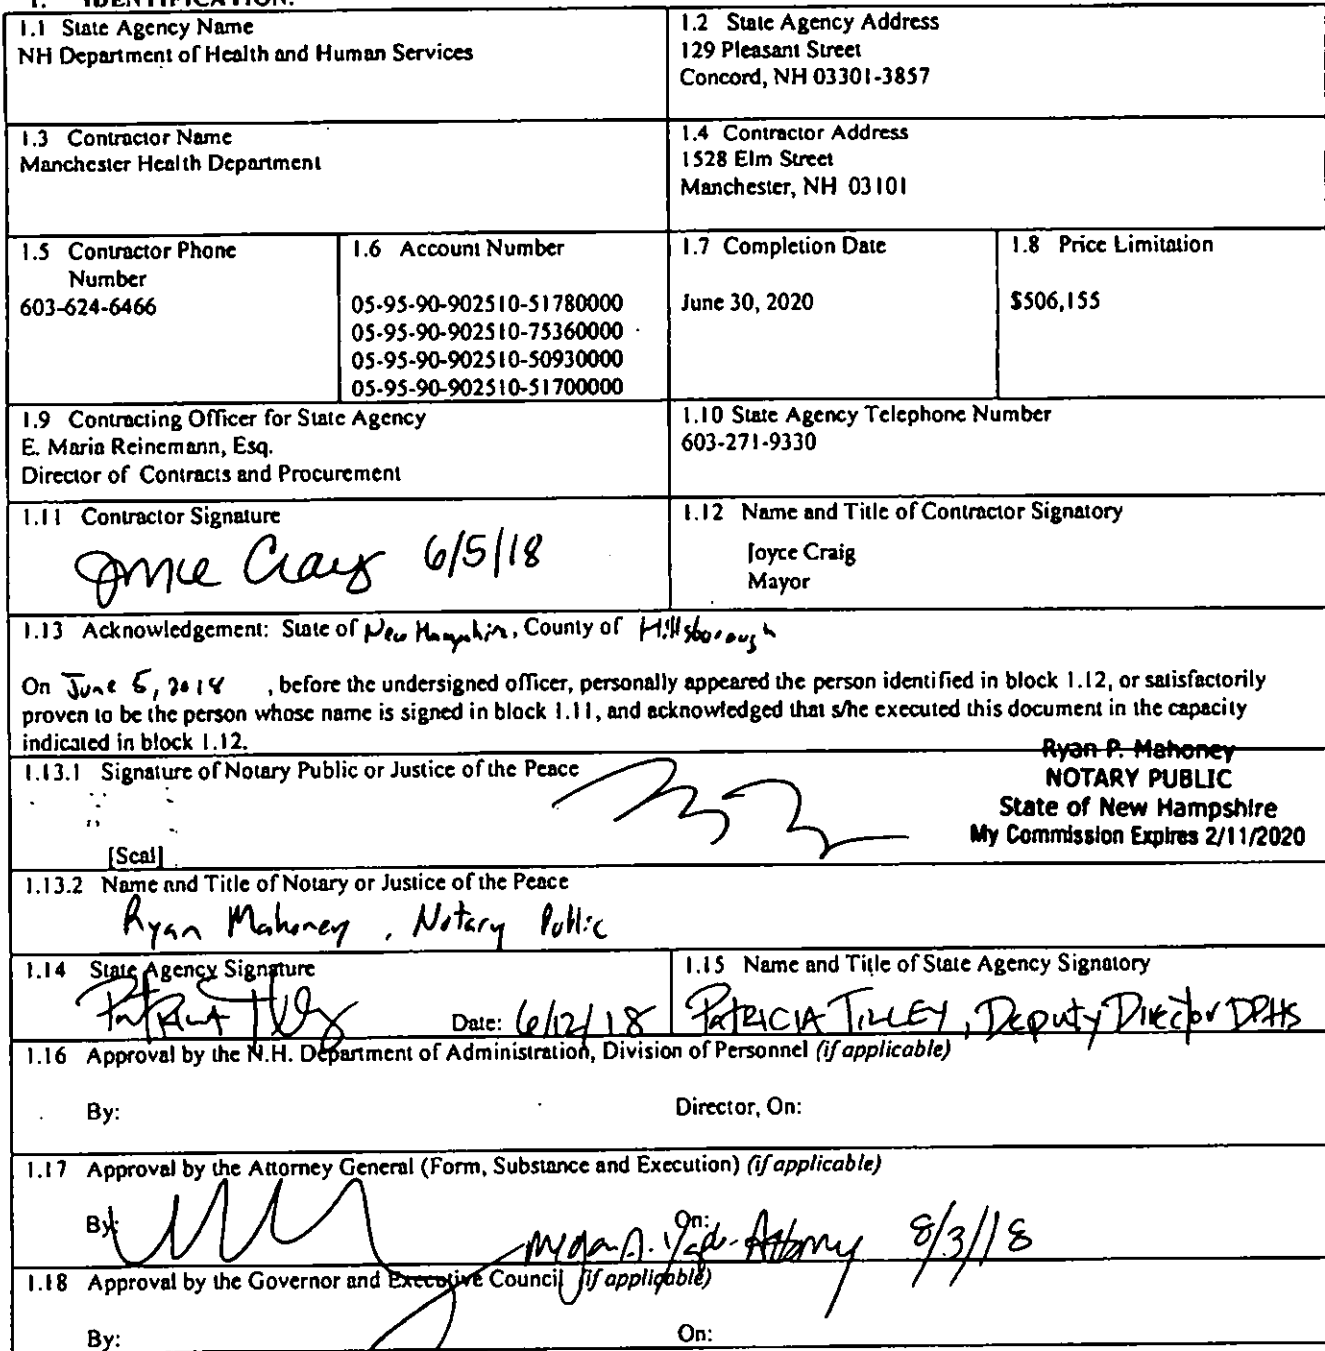 1. IDENTIFICATION.
1.1 State Agency Name
NH Department of Health and Human Services
1.2 State Agency Address
129 Pleasant Street
Concord, NH 03301-3857
1.3 Contractor Name
Manchester Health Department
1.4 Contractor Address
1528 Elm Street
Manchester, NH 03101
1.5 Contractor Phone
Number
603-624-6466
1.6 Account Number
05-95-90-902510-51780000
05-95-90-902510-75360000
05-95-90-902510-50930000
05-95-90-902510-51700000
1.7 Completion Date
June 30, 2020
1.8 Price Limitation
$506,155
1.9 Contracting Officer for State Agency
E. Maria Reinemann, Esq.
Director of Contracts and Procurement
1.10 State Agency Telephone Number
603-271-9330
1.11 Contractor Signature
Joyce Craig 6/5/18
1.12 Name and Title of Contractor Signatory
Joyce Craig
Mayor
1.13 Acknowledgement: State of New Hampshire, County of Hillsborough
On June 5, 2018 , before the undersigned officer, personally appeared the person identified in block 1.12, or satisfactorily
proven to be the person whose name is signed in block 1.11, and acknowledged that s/he executed this document in the capacity
indicated in block 1.12.
1.13.1 Signature of Notary Public or Justice of the Peace
[Seal]
Ryan P. Mahoney
NOTARY PUBLIC
State of New Hampshire
My Commission Expires 2/11/2020
1.13.2 Name and Title of Notary or Justice of the Peace
Ryan Mahoney , Notary Public
1.14 State Agency Signature
Date: 6/12/18
1.15 Name and Title of State Agency Signatory
PATRICIA TILLEY, Deputy Director DPHS
1.16 Approval by the N.H. Department of Administration, Division of Personnel (if applicable)
By: Director, On:
1.17 Approval by the Attorney General (Form, Substance and Execution) (if applicable)
By: On: Attorney 8/3/18
1.18 Approval by the Governor and Executive Council (if applicable)
By: On: